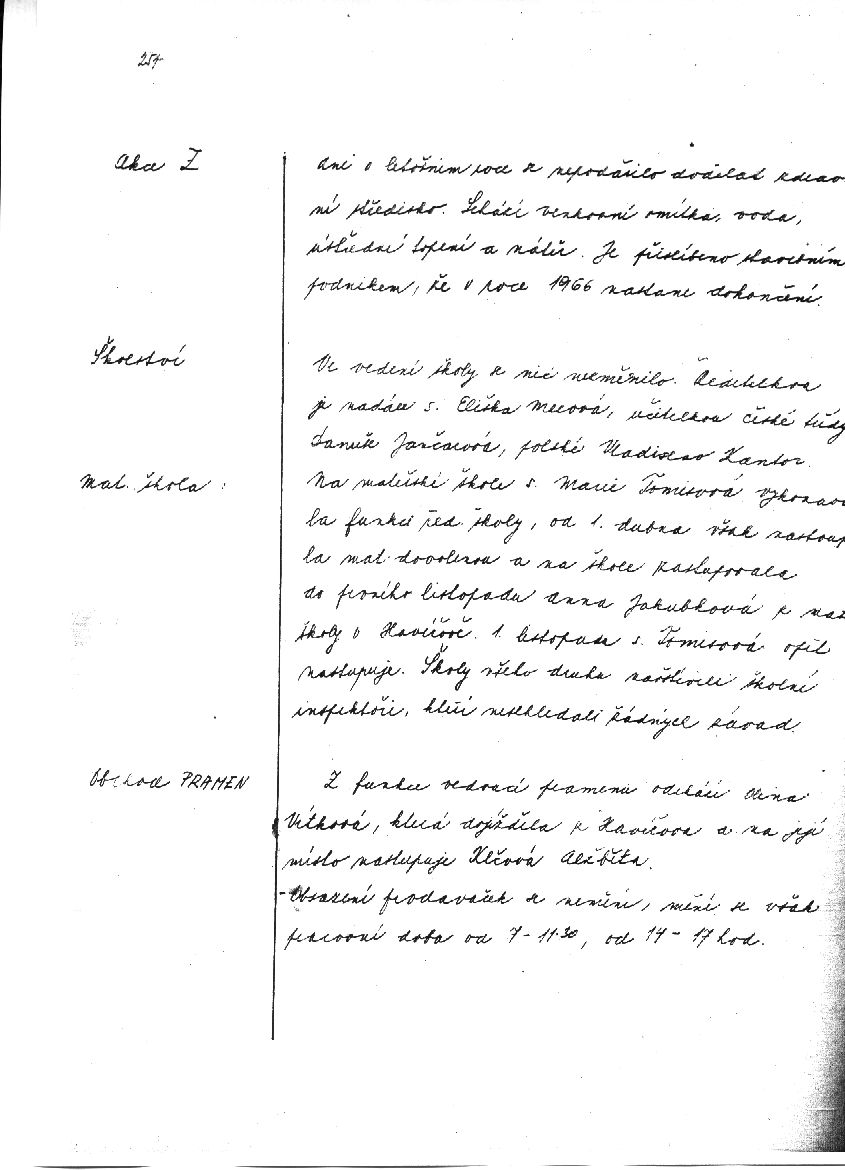 254
Akce Z
Ani v letošním roce se nepodařilo dodělat zdravo
ní středisko. Schází venkovní omítka, voda,
ústřední topení a nátěr. Je přislíbeno stavebním
podnikem, že v roce 1966 nastane dokončení.
Školství
Ve vedení školy se nic nezměnilo. Ředitelkou
je nadále s. Eliška Mecová, učitelkou české třídy
Danuše Jančarová, polské Vladislav Kantor.
Mat. škola:
Na mateřské škole s. Marie Tomisová vykonáv
la funkci řed. školy, od 1. dubna však nastoup
la mat. dovolenou a na škole zastupovala
do prvního listopadu Anna Jakubková z mat
školy v Havířově. 1. listopadu s. Tomisová opět
nastupuje. Školy všeho druhu navštívili školní
inspektoři, kteří neshledali žádných závad.
Obchod PRAMEN
Z funkce vedoucí pramenu odchází
Vítková, která dojížděla z Havířova a na její
místo nastupuje Klčová Alžběta.
- Obsazení prodavaček se nemění, mění se však
pracovní doba od 7 - 11.30, od 14 - 17 hod.